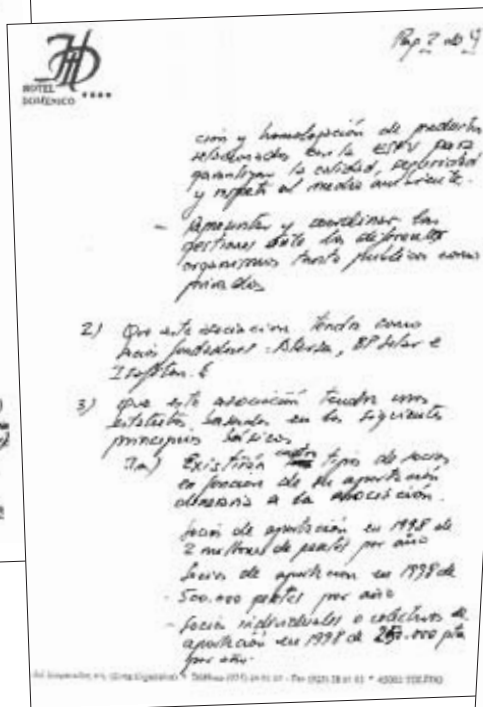 HOTEL
DOMENICO ****
Pag 2 de 4
ción y homologación de productos
relacionados con la ESFV para
garantizar la calidad, seguridad
y respeto al medio ambiente.
- Representar y coordinar las
gestiones ante los diferentes
organismos tanto públicos como
privados
2) Que esta asociación tendrá como
socios fundadores: Atersa, BP Solar e
Isofotón.
3) Que esta asociación tendrá unos
estatutos basados en los siguientes
principios básicos
Existirán tipos de socios
en función de su aportación
dineraria a la asociación.
Socios de aportación en 1998 de
2 millones de pesetas por año
Socios de aportación en 1998 de
500.000 pesetas por año
- Socios individuales o colectivos de
aportación en 1998 de 250.000 pta
por año.
45002 TOLEDO